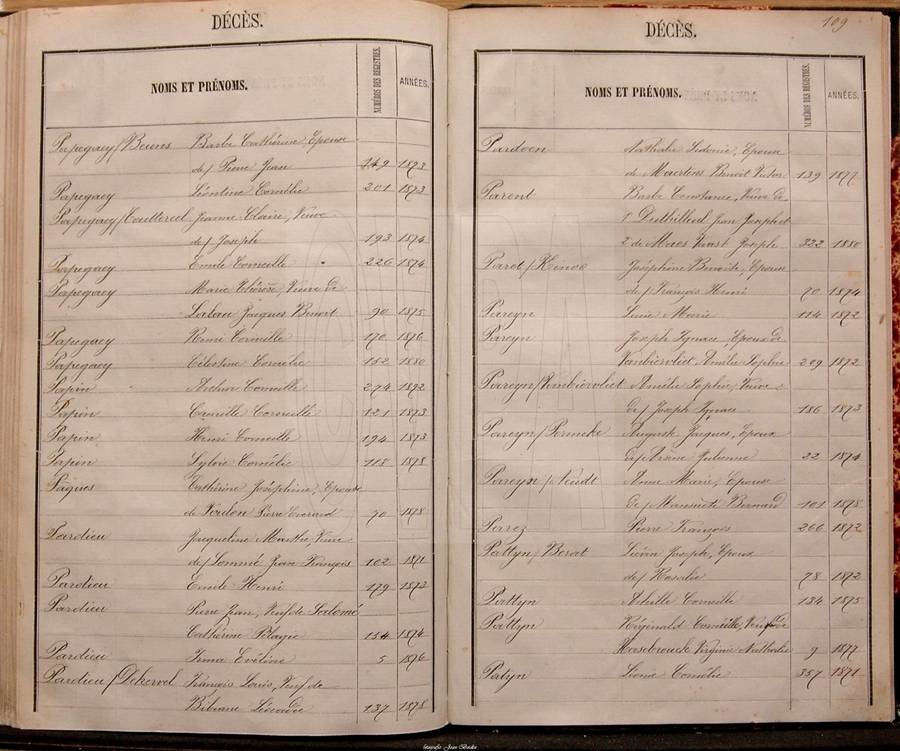 DÉCÈS.
NOMS ET PRÉNOMS.
NUMÉROS DES REGISTRES.
ANNÉES.
Papegaey/Beuns Barbe Cathérine, Epouse
de/ Pierre Jean 149 1873
Papegaey Léontine Cornélie 201 1873
Papegaey/Couttereel Jeanne Claire, Veuve
de/ Joseph 193 1874
Papegaey Emile Corneille 226 1874
Papegaey Marie Thérèse, Veuve de
Lalau Jacques Benoit 90 1875
Papegaey Remi Corneille 170 1876
Papegaey Célestine Cornélie 152 1880
Papin Archur Corneille 274 1872
Papin Camille Corneille 121 1873
Papin Henri Corneille 194 1873
Papin Sylvie Cornélie 118 1878
Pâques Cathérine Joséphine, Epouse
de Pierre Everard 70 1878
Pardieu Jacqueline Marthe, Veuve
de/ Jean François 102 1871
Pardieu Emile Henri 179 1873
Pardieu Pierre Jean, Veuf de Salomé
Cathérine Pélagie 154 1874
Pardieu Irma Eveline 5 1876
Pardieu/Dekervel François Louis, Veuf de
Bibiane Léocadie 137 1878
109
DÉCÈS.
NOMS ET PRÉNOMS.
NUMÉROS DES REGISTRES.
ANNÉES.
Pardoen Nathalie Sidonie, Epouse
de Maertens Benoit Victor 139 1877
Parent Barbe Constance, Veuve de
1° Jean Josephet
2 de Maes Vaast Joseph 322 1880
Paret/ Joséphine Benoite, Epouse
de/ François Henri 70 1874
Pareyn Lucie Marie 114 1872
Pareyn Joseph Ignace, Epoux de
Vanbiervliet Amélie Sophie 209 1872
Pareyn/Vanbiervliet Amélie Sophie, Veuve
de/ Joseph Ignace 186 1873
Pareyn/Permeke Auguste Jacques, Epoux
de/ Arsène Julienne 22 1874
Pareyn/Neudt Anne Marie, Epouse
de/ Mansuète Bernard 101 1878
Parez Pierre François 266 1872
Pattyn/Berat Liévin Joseph, Epoux
de/ Rosalie 78 1872
Pattyn Achille Corneille 134 1875
Pattyn Réginald Corneille, Veuf de
Hasebrouck Virginie Nathalie 9 1877
Patyn Léonie Cornélie 357 1871